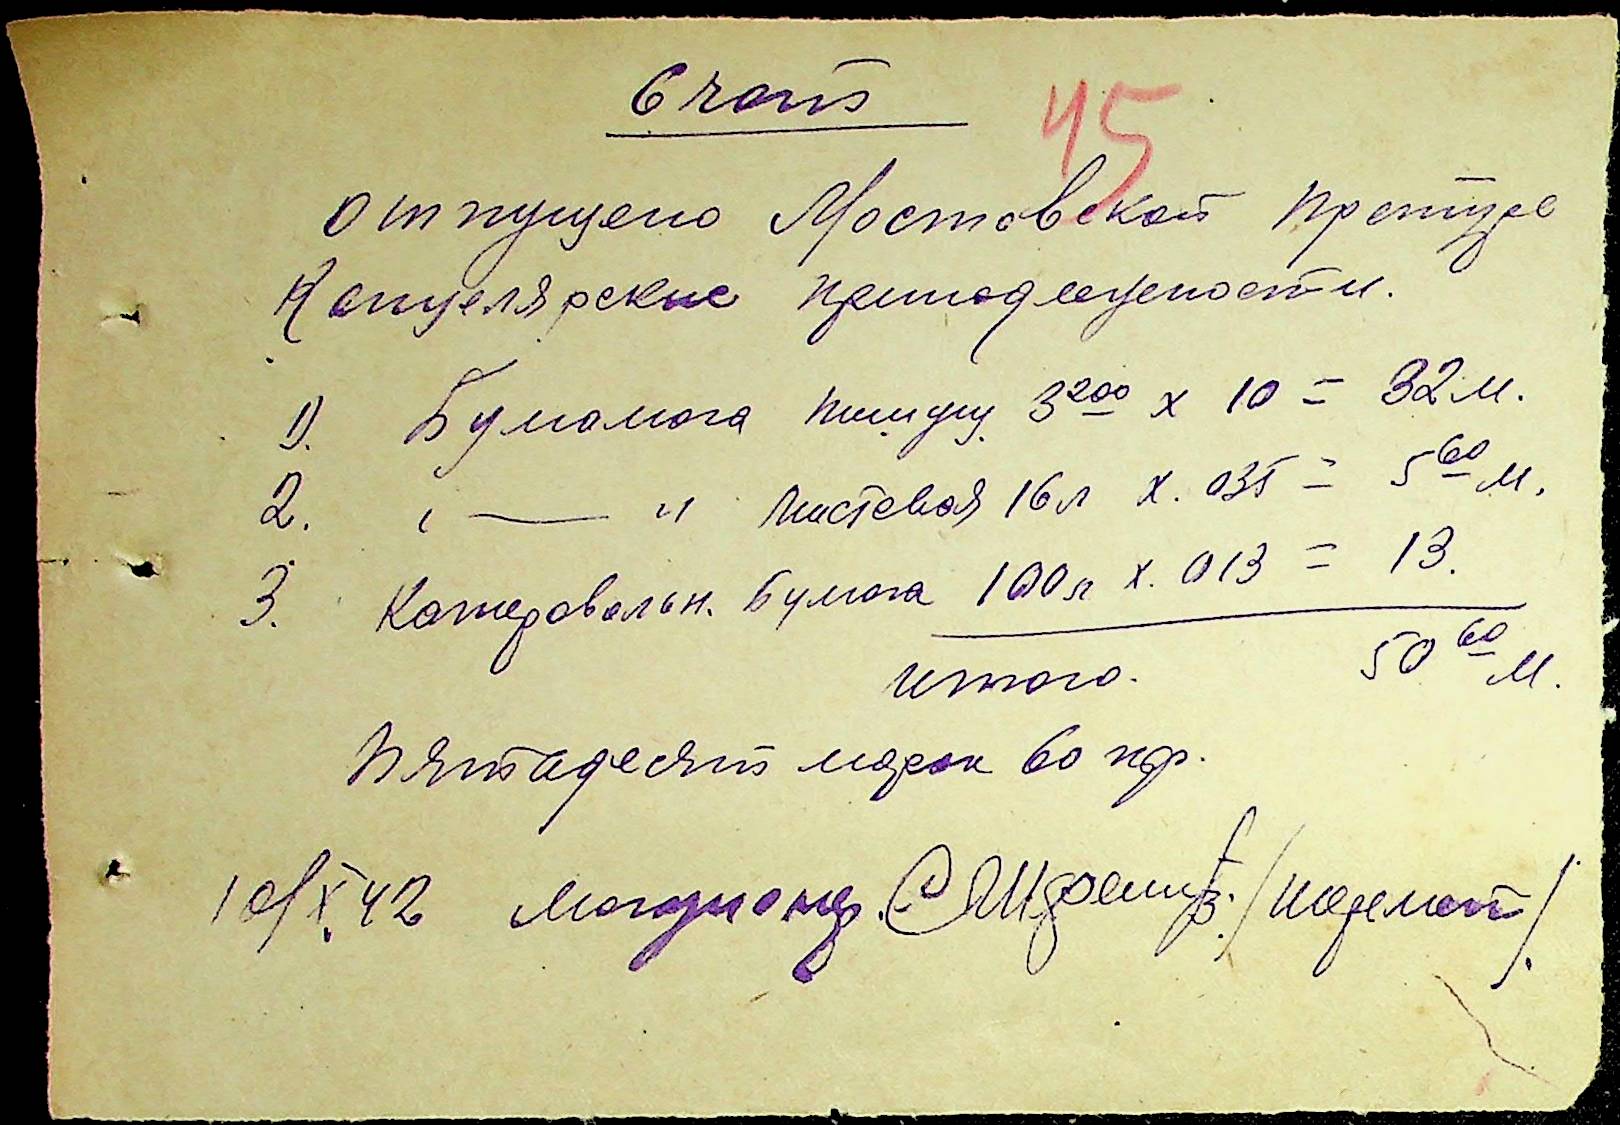 Счот
45
отпущено Мостовской
Канцелярские принадлещности.
1). Бумамага пишущ. 3 200 х 10 = 32 м.
2. " — " листовая 16 л х. 035 = 5 60 м.
3. Копировальн. бумага 100 л х. 013 = 13.
Итого. 50 60 м.
Пятадесят марок 60 пф.
10/X 42